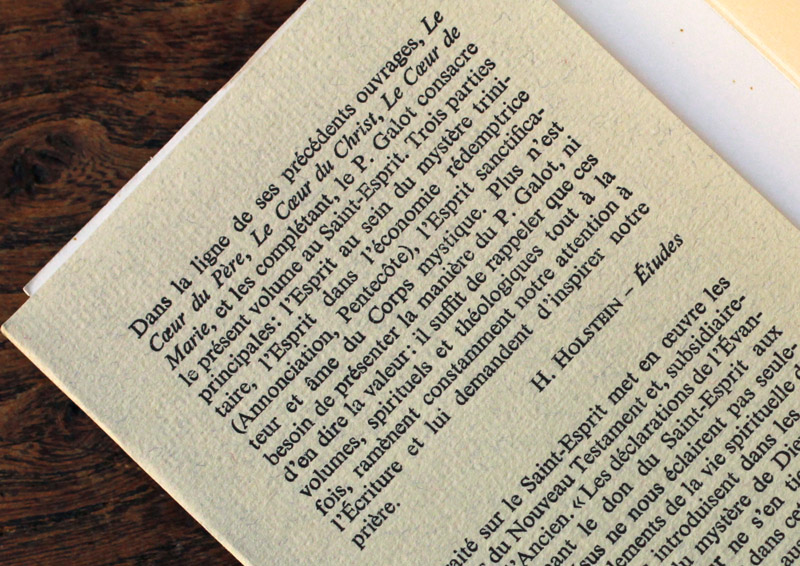 Dans la ligne de ses précédents ouvrages, Le
Cœur du Père, Le Cœur du Christ, Le Cœur de
Marie, et les complétant, le P. Galot consacre
le présent volume au Saint-Esprit. Trois parties
principales: l'Esprit au sein du mystère trini-
taire, l'Esprit dans l'économie rédemptrice
(Annonciation, Pentecôte), l'Esprit sanctifica-
teur et âme du Corps mystique. Plus n'est
besoin de présenter la manière du P. Galot, ni
d'en dire la valeur: il suffit de rappeler que ces
volumes, spirituels et théologiques tout à la
fois, ramènent constamment notre attention à
l'Écriture et lui demandent d'inspirer notre
prière.
H. HOLSTEIN – Études
sur le Saint-Esprit met en œuvre les
du Nouveau Testament et, subsidiaire-
l'Ancien. «Les déclarations de l'Évan-
le don du Saint-Esprit aux
ne nous éclairent pas seule-
de la vie spirituelle
introduisent dans les
du mystère de
ne s'en
dans